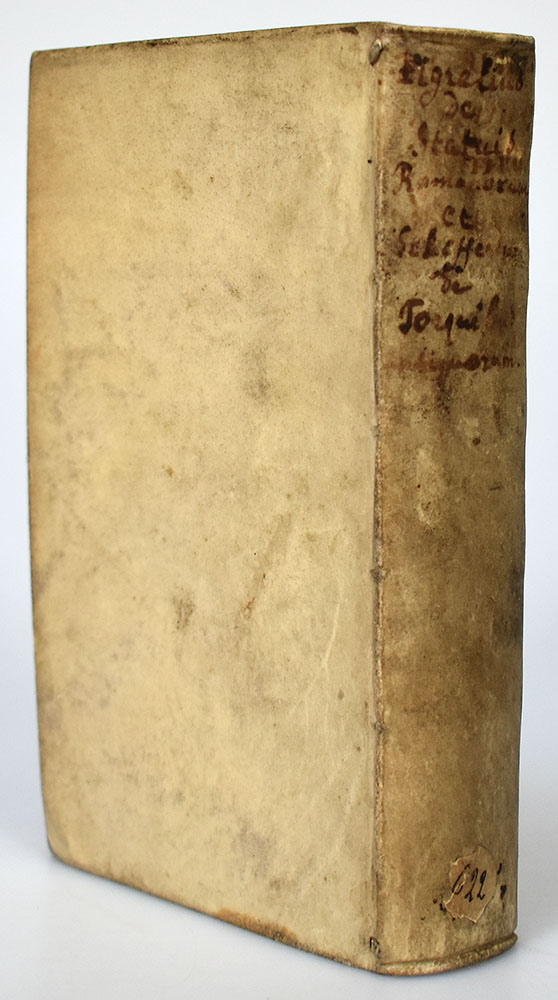 Figrelius
de
Statuis
Romanorum
et
Schefferus
de
Torquibus
antiquorum.
622